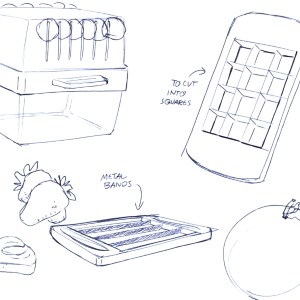 TO CUT
INTO
SQUARES
METAL
BANDS